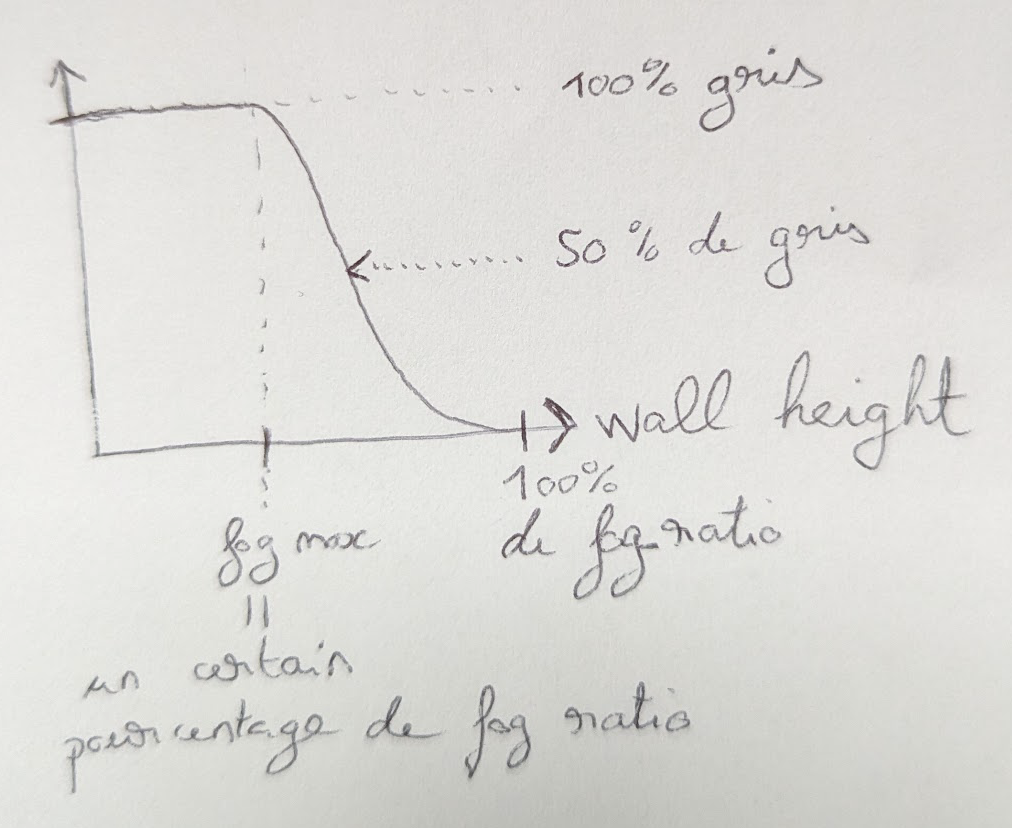 100% gris
50% de gris
wall height
100%
de fog ratio
fog max
un certain
pourcentage de fog ratio